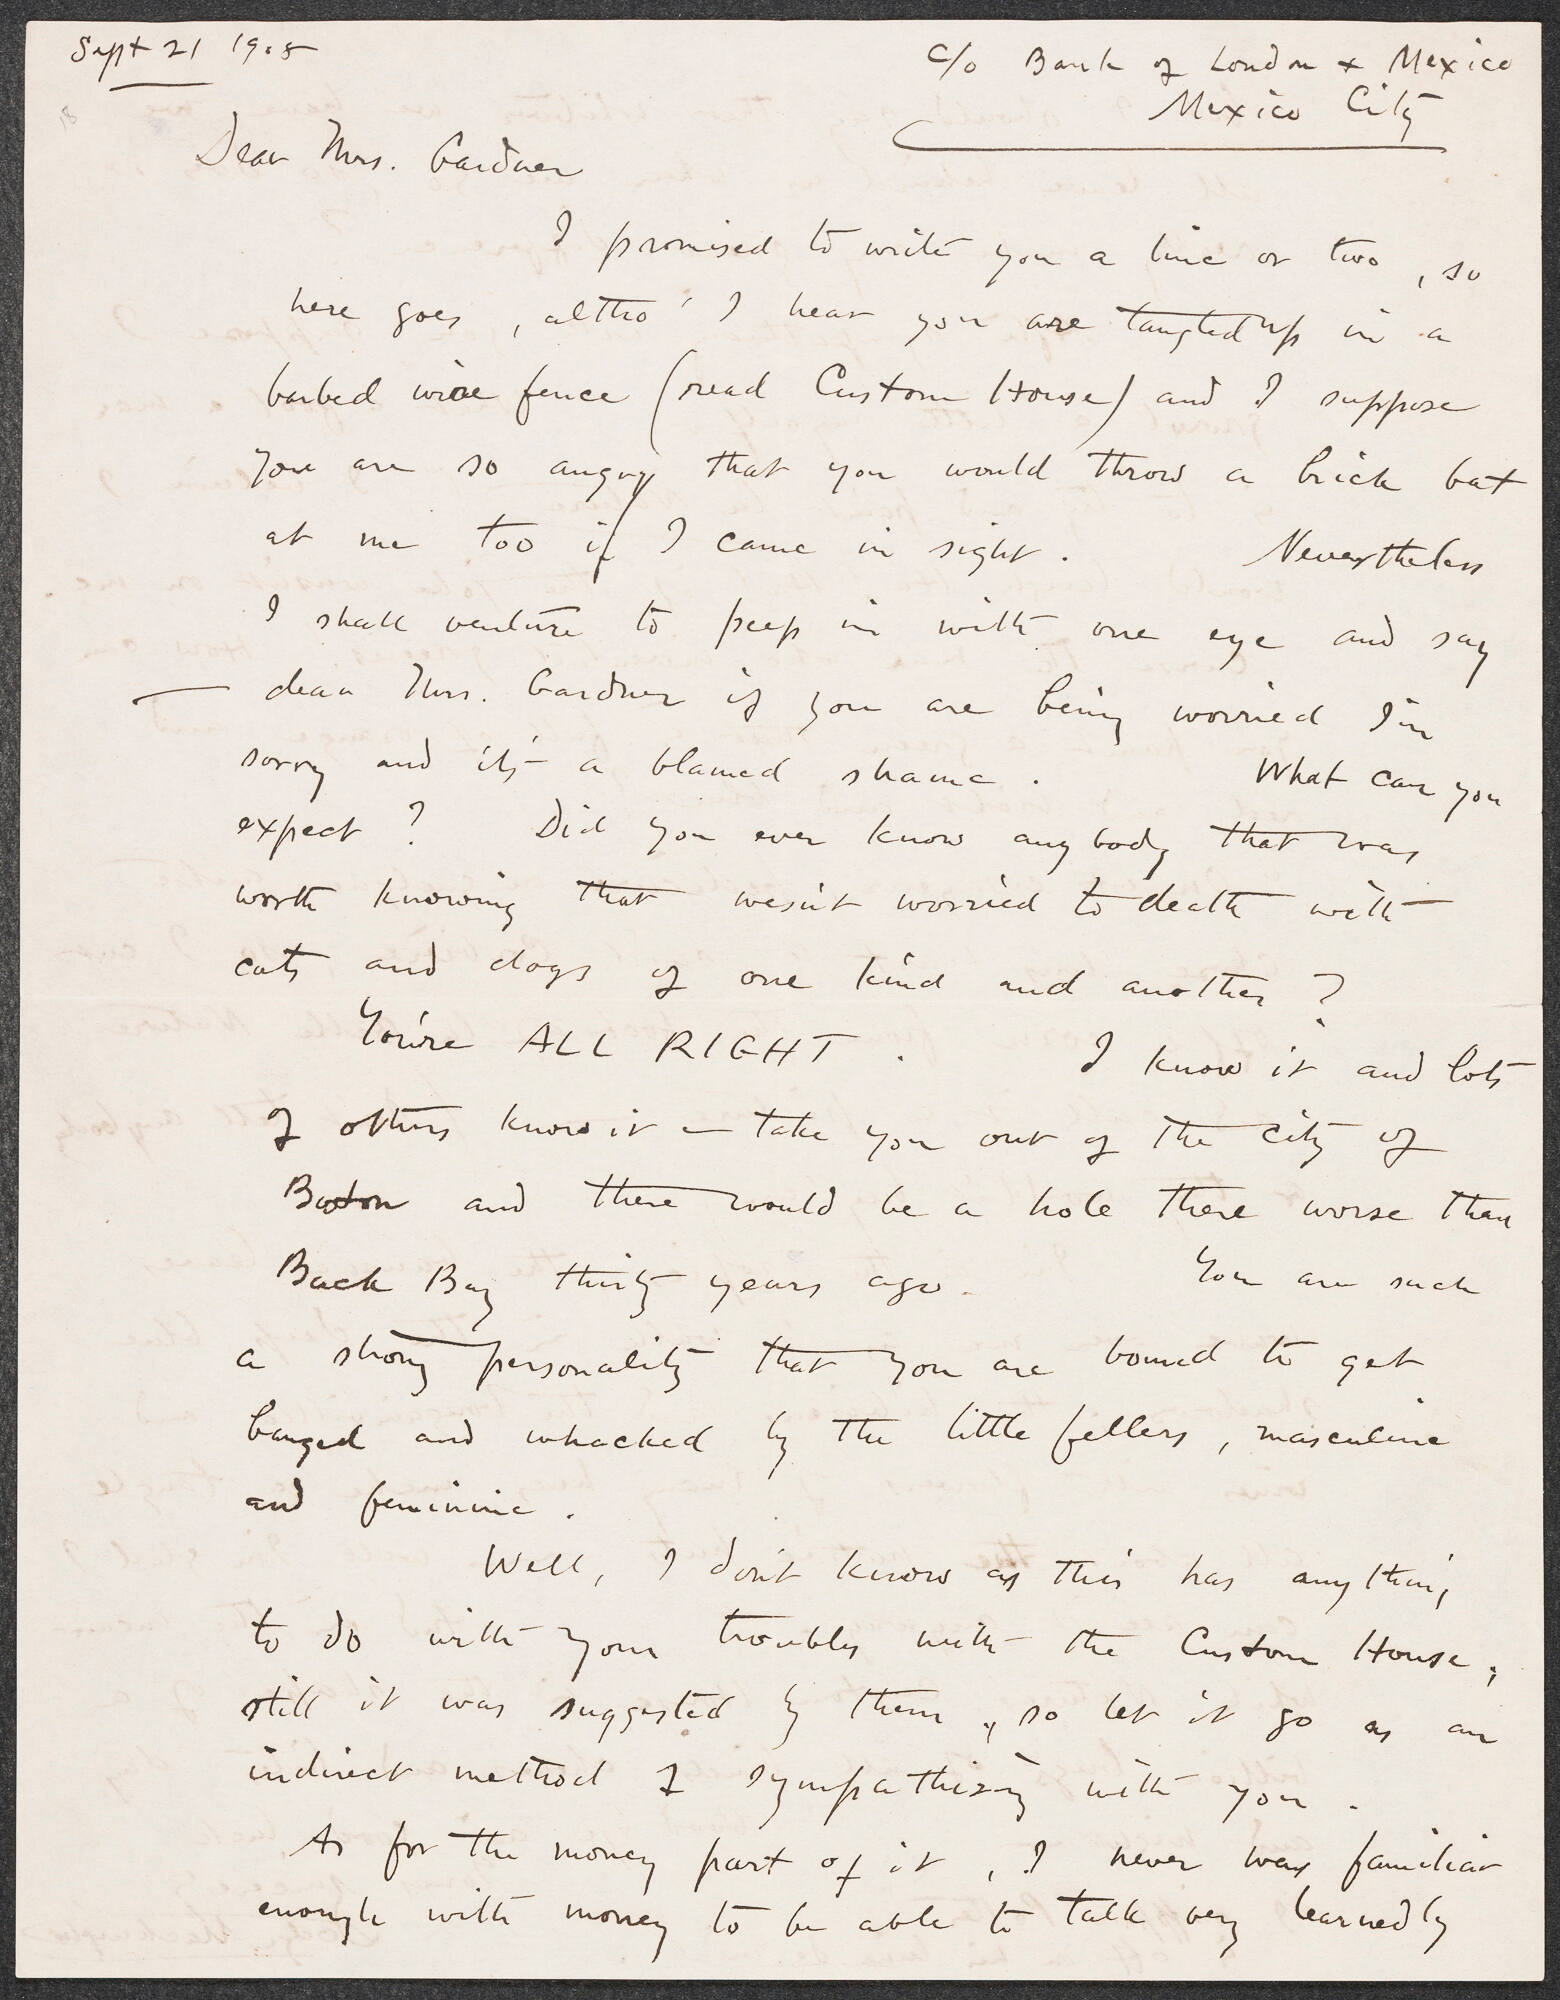 Sept 21 1908
c/o Bank of London & Mexico
Mexico City
Dear Mrs. Gardner
I promised to write you a line or two, so
here goes, altho' I hear you are tangled up in a
barbed wire fence (read Custom House) and I suppose
you are so angry that you would throw a brick bat
at me too if I came in sight. Nevertheless
I shall venture to peep in with one eye and say
— dear Mrs. Gardner if you are being worried I'm
sorry and it's a blamed shame. What can you
expect? Did you ever know anybody that was
worth knowing that wesn't worried to death with
cats and dogs of one kind and another?
You're ALL RIGHT. I know it and lots
of others know it — take you out of the city of
Boston and there would be a hole there worse than
Back Bay thirty years ago. You are such
a strong personality that you are bound to get
banged and whacked by the little fellers, masculine
and feminine.
Well, I don't know as this has anything
to do with your troubles with the Custom House;
still it was suggested by them, so let it go as an
indirect method of sympathizing with you.
As for the money part of it, I never was familiar
enough with money to be able to talk very learnedly